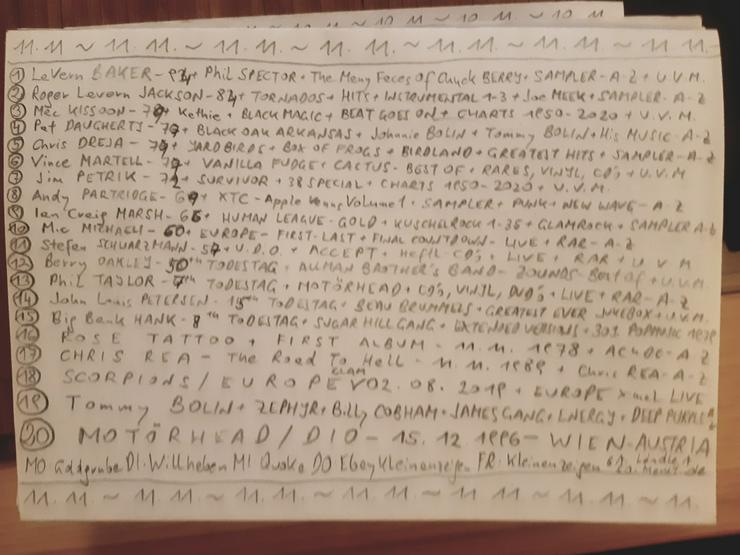 11.11 ~ 11.11. ~ 11.11. ~ 11.11. ~ 11.11. ~ 11.11. ~ 11.11.
1 LeVern BAKER - + Phil SPECTOR + The Meny Feces of Chuck BERRY + SAMPLER - A-Z + U.V.M.
2 Roger Levern JACKSON - + TORNADOS + HITS + INSTRUMENTAL 1-3 + Joe MEEK + SAMPLER - A-Z
3 Mec KISSOON - + Kethie + BLACK MAGIC + BEAT GOES ON + CHARTS 1950-2020 + U.V.M.
4 Pet DAUGHERTY - + BLACK OAK ARKANSAS + Johnnie BOLIN + Tommy BOLIN + His MUSIC - A-Z
5 Chris DREJA - + YARDBIRDS + BOX OF FROGS + BIRDLAND + GREATEST HITS + SAMPLER - A-Z
6 Vince MARTELL - + VANILLA FUDGE + CACTUS - BEST OF + RARES, VINYL, CD's + U.V.M.
7 Jim PETRIK - + SURVIVOR + 38 SPECIAL + CHARTS 1950-2020 + U.V.M.
8 Andy PARTRIDGE - + XTC - Apple Venus Volume 1 + SAMPLER + PUNK + NEW WAVE - A-Z
9 Ian Creig MARSH - + HUMAN LEAGUE - GOLD + KUSCHELROCK 1-35 + GLAMROCK + SAMPLER
10 Mic MICHAELI - 60 + EUROPE - FIRST - LAST + FINAL COUNTDOWN - LIVE + RAR - A-Z
11 Stefen SCHWARZMANN - + U.D.O. + ACCEPT + CD's + LIVE + RAR + U V M
12 Berry OAKLEY - 50th TODESTAG + ALLMAN BROTHER's BAND - ZOUNDS - Best of + U.V.M.
13 Phil TAYLOR - TODESTAG + MOTÖRHEAD + CD's, VINYL, DVD's + LIVE + RAR - A-Z
14 John Louis PETERSEN - 15th TODESTAG + BEAU BRUMMELS + GREATEST EVER JUKEBOX + U.V.M.
15 Big Benk HANK - 8th TODESTAG + SUGARHILL GANG + EXTENDED VERSIONS + POPMUSIC 1979
16 ROSE TATTOO + FIRST ALBUM - 11.11. 1978 + AC DC - A-Z
17 CHRIS REA - The Road To Hell - 11.11. 1989 + Chris REA - A-Z
18 SCORPIONS / EUROPE 02.08.2019 + EUROPE LIVE
GLAM
19 Tommy BOLIN + ZEPHYR + Billy COBHAM + JAMES GANG + ENERGY + DEEP PURPLE
20 MOTÖRHEAD / DIO - 15.12.1996 - WIEN - AUSTRIA
MO Goldgrube DI: Willheben MI Quoka DO Ebay Kleinanzeigen FR: Kleinanzeigen
11.11. ~ 11.11. ~ 11.11. ~ 11.11. ~ 11.11. ~ 11.11. ~ 11.11.